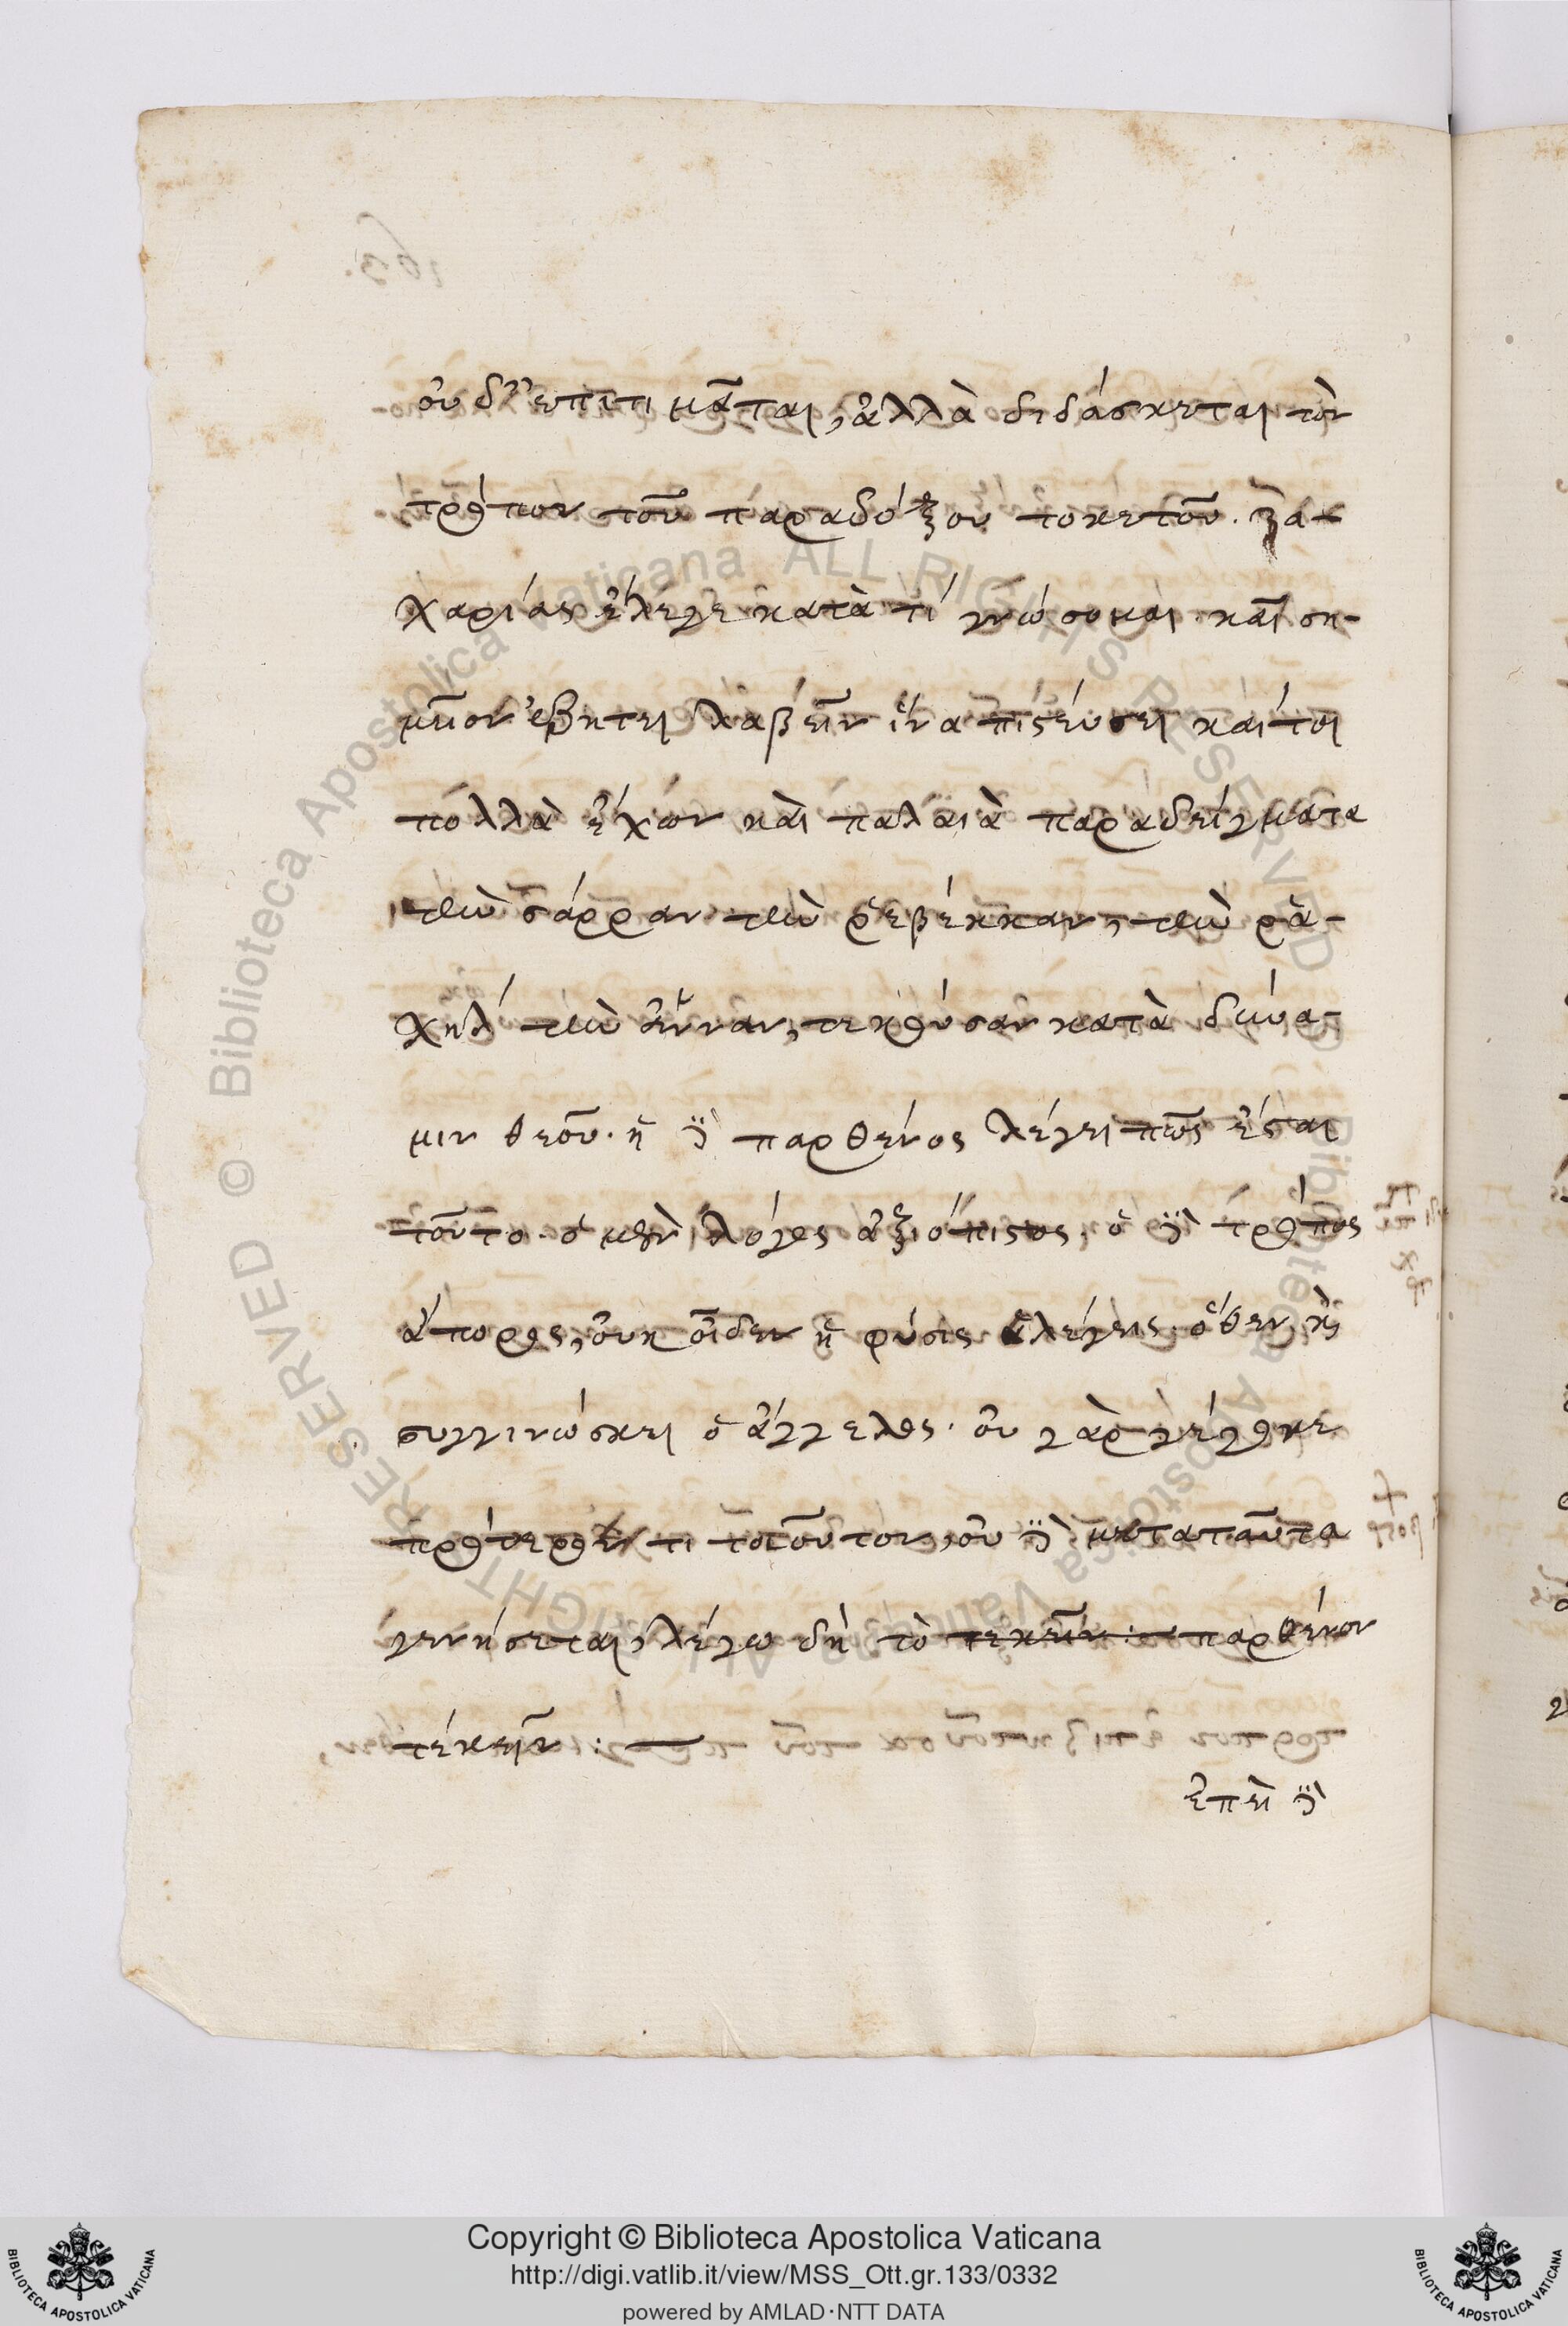 οὐδ' ἐπιτιμᾶται, ἀλλὰ διδάσκεται τὸν
τρόπον τοῦ παραδόξου τοκετοῦ. ζα-
χαρίας ἔλεγε κατὰ τί γνώσομαι καὶ ση-
μεῖον ἐζήτει λαβεῖν ἵνα πιστεύσει καίτοι
πολλὰ ἔχων καὶ παλαιὰ παραδείγματα
τὴν σάρραν τὴν ῥεβέκκαν, τὴν ρἀ-
χηλ τὴν ἄνναν, τεκούσαν κατὰ δύνα-
μιν θεοῦ. ἡ δὲ παρθένος λέγει πῶς ἔσται
τοῦτο. ὁ μὲν λόγος ἀξιόπιστος. ὁ δὲ τρόπος
ἄπορος, οὐκ οἶδεν ἡ φύσις ἃ λέγεις. ὅθεν καὶ
συγγινώσκει ὁ ἄγγελος. οὐ γὰρ γέγονε
πρότερον τι τοιοῦτον, οὐ δὲ μεταταῦτα
γενήσεται, λέγω δὴ τὸ τεκεῖν : παρθένον
τέκεῖν : —
ἐπεὶ δὲ
Copyright © Biblioteca Apostolica Vaticana
http://digi.vatlib.it/view/MSS_Ott.gr.133/0332
powered by AMLAD·NTT DATA